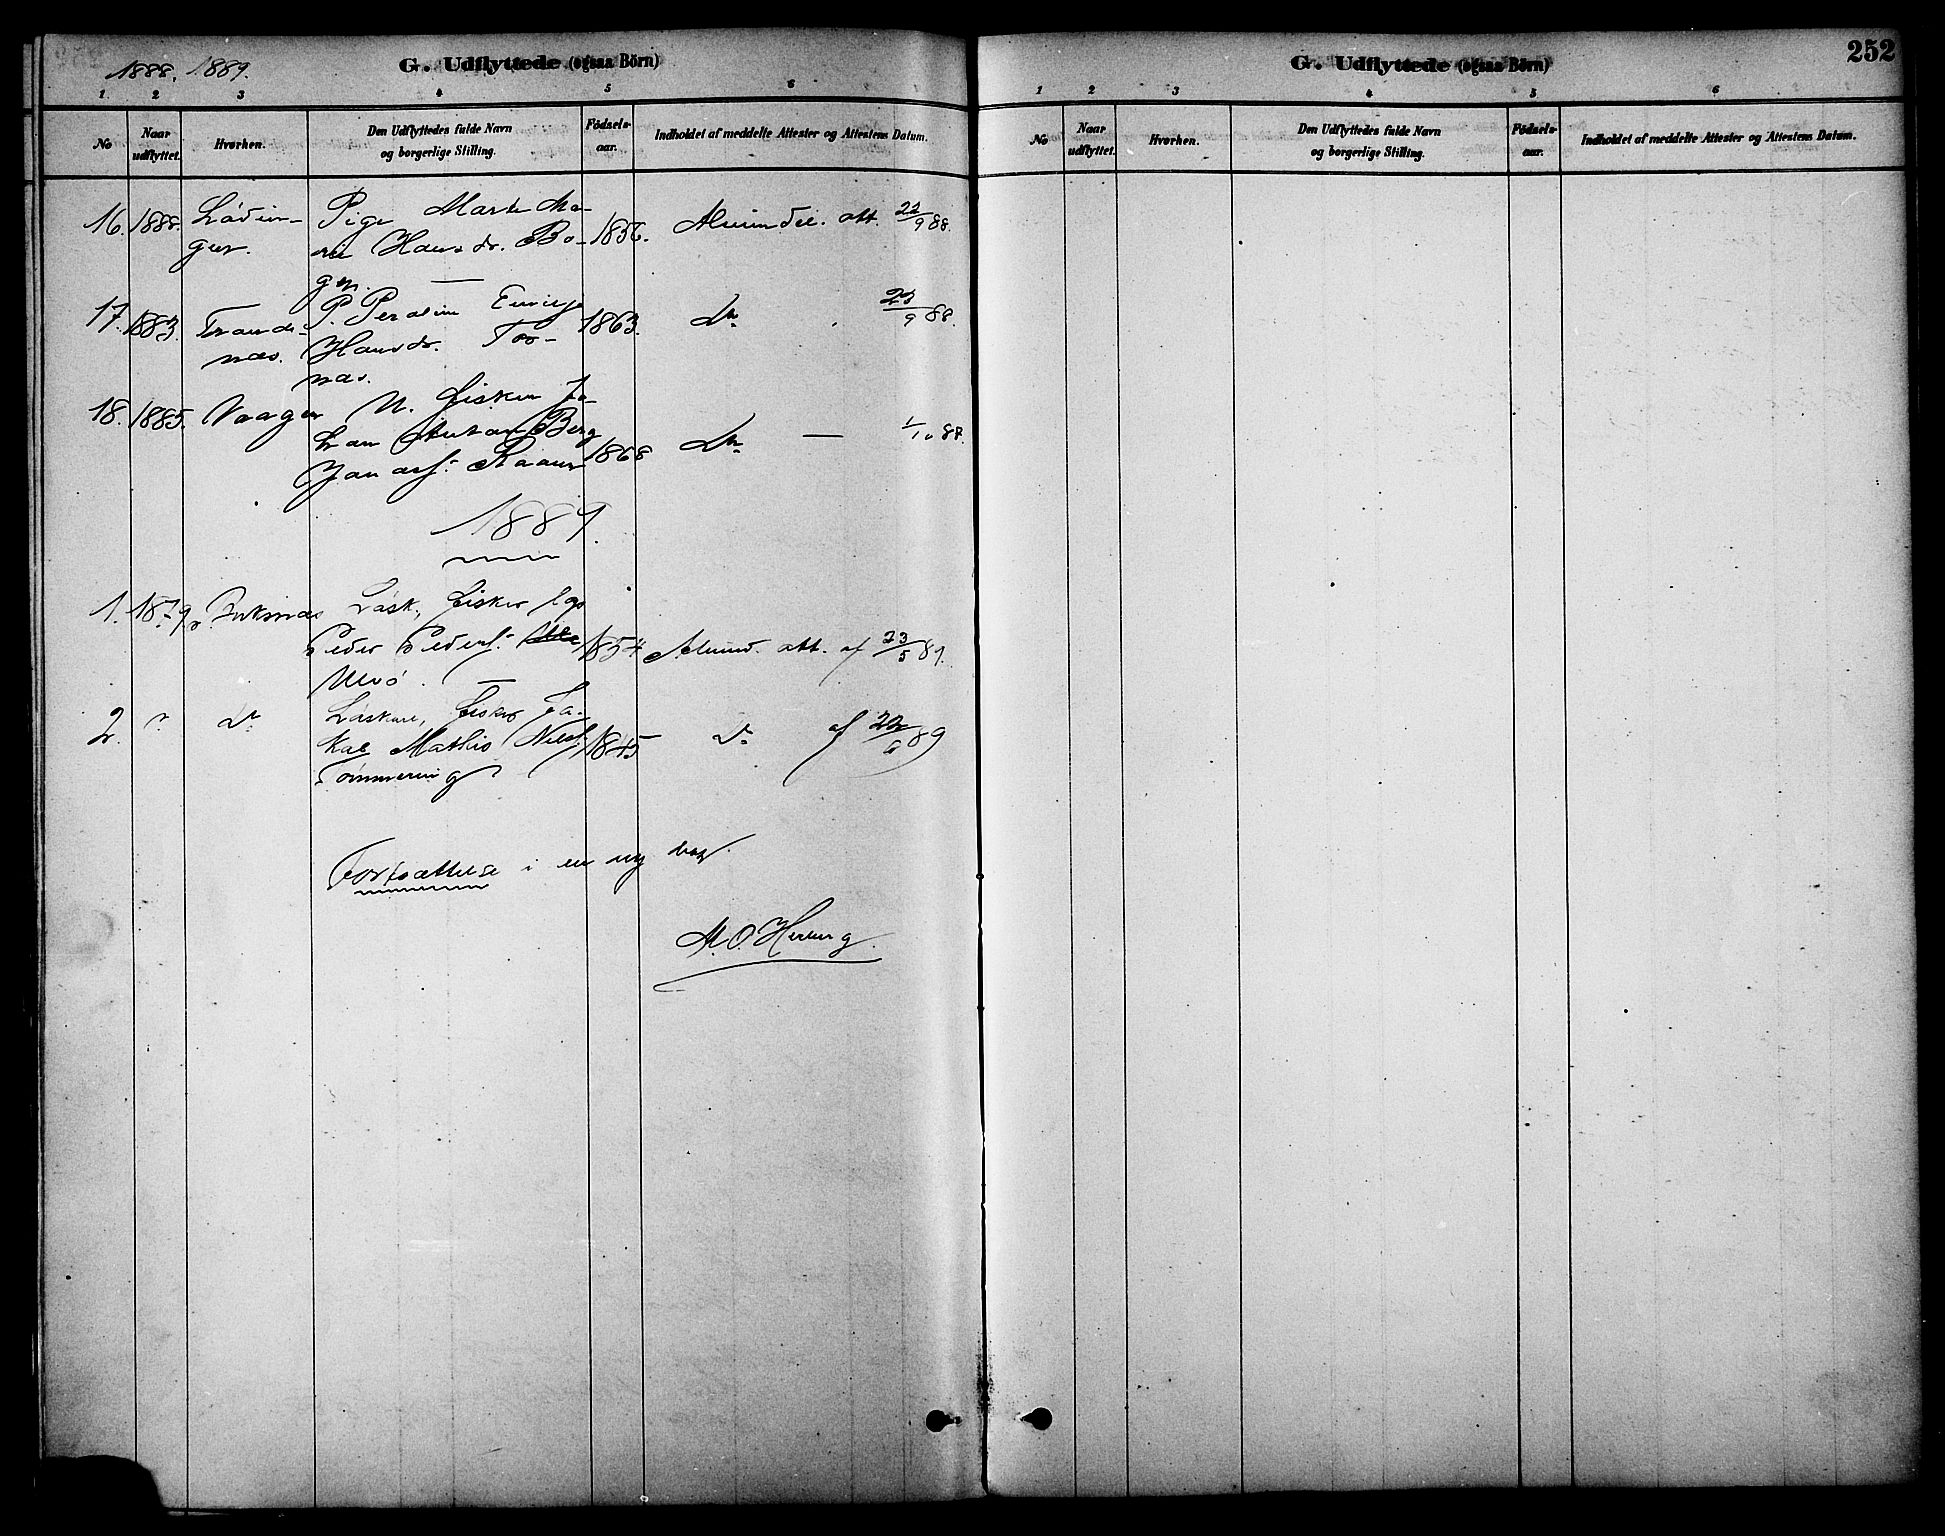 1888. 1889.
G. Udflyttede (ogsaa Börn)
1. 2 3 4 5 6
No
Naar udflyttet.
Hvorhen.
Den Udflyttedes fulde Navn
og borgerlige Stilling.
Födsels-
aar.
Indholdet af meddelte Attester og Attestens Datum.
16. 1888. Lödin- Pige Marte Ma-
gen. Hansdr. Bo- 1856. Almindel. att. 22/9 88.
gen. —
17. 1883. Trondе- P. Perdine 1863. Do 23/9 88.
næs. Hansdr. Tor-
næs.
18. 1885. Vaagen U. fisker Jo-
han Anton Berg
1868 Do — 1/10 88.
1889.
1. 1879. Buksnæs Lösk, fisker
Peder Peders. 1854 Almind. att. af 23/5 89.
Ulvö. —
2. " Do Löskar, fisker Ja-
kob Mathis Niels. 1845 Do af 22/6 89
Tömmering
Fortsættelse i en ny bog.
M. O. Herberg.
G. Udflyttede (ogsaa Börn)
252
1 2 3 4 5 6
No
Naar udflyttet.
Hvorhen.
Den Udflyttedes fulde Navn
og borgerlige Stilling.
Födsels-
aar.
Indholdet af meddelte Attester og Attestens Datum.